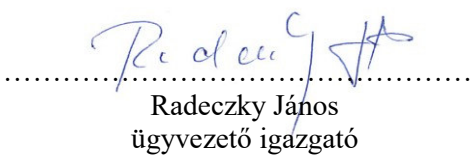 Radeczky János
ügyvezető igazgató